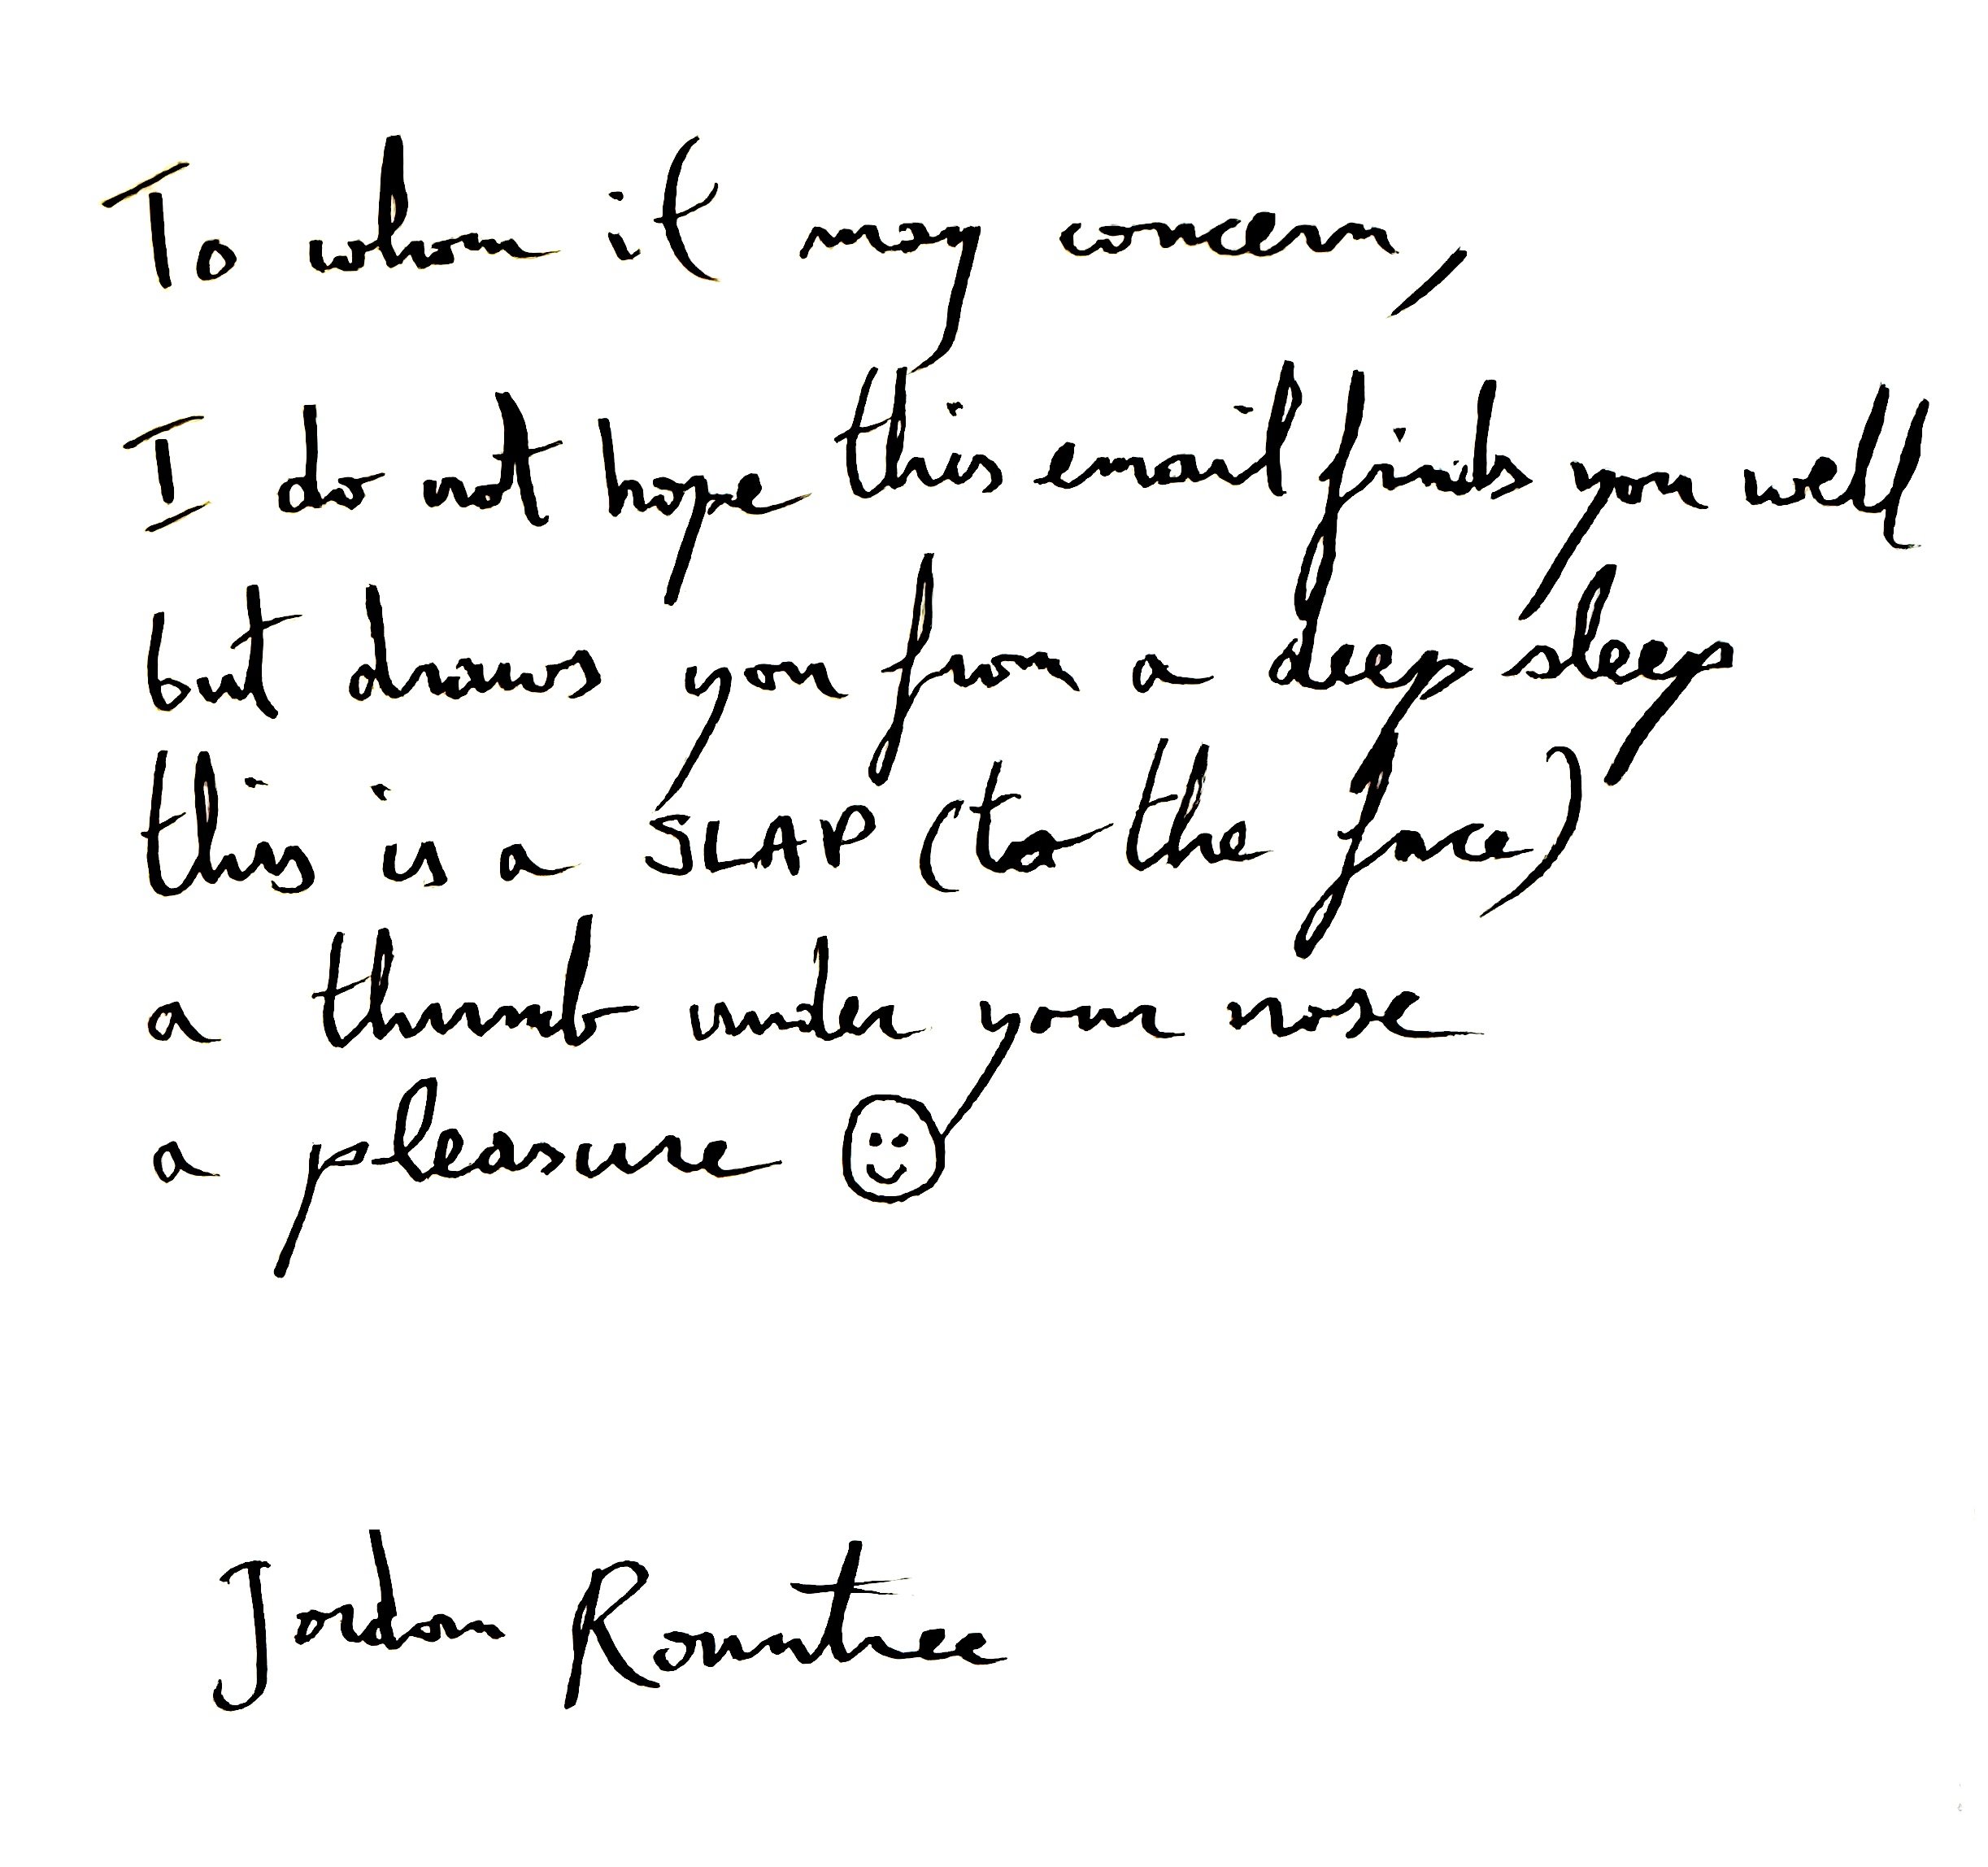 To whom it may concern,
I do not hope this email finds you well
but draws you from a deep sleep
this is a SLAP (to the face)
a thumb under your nose
a pleasure
Jordan Rountree